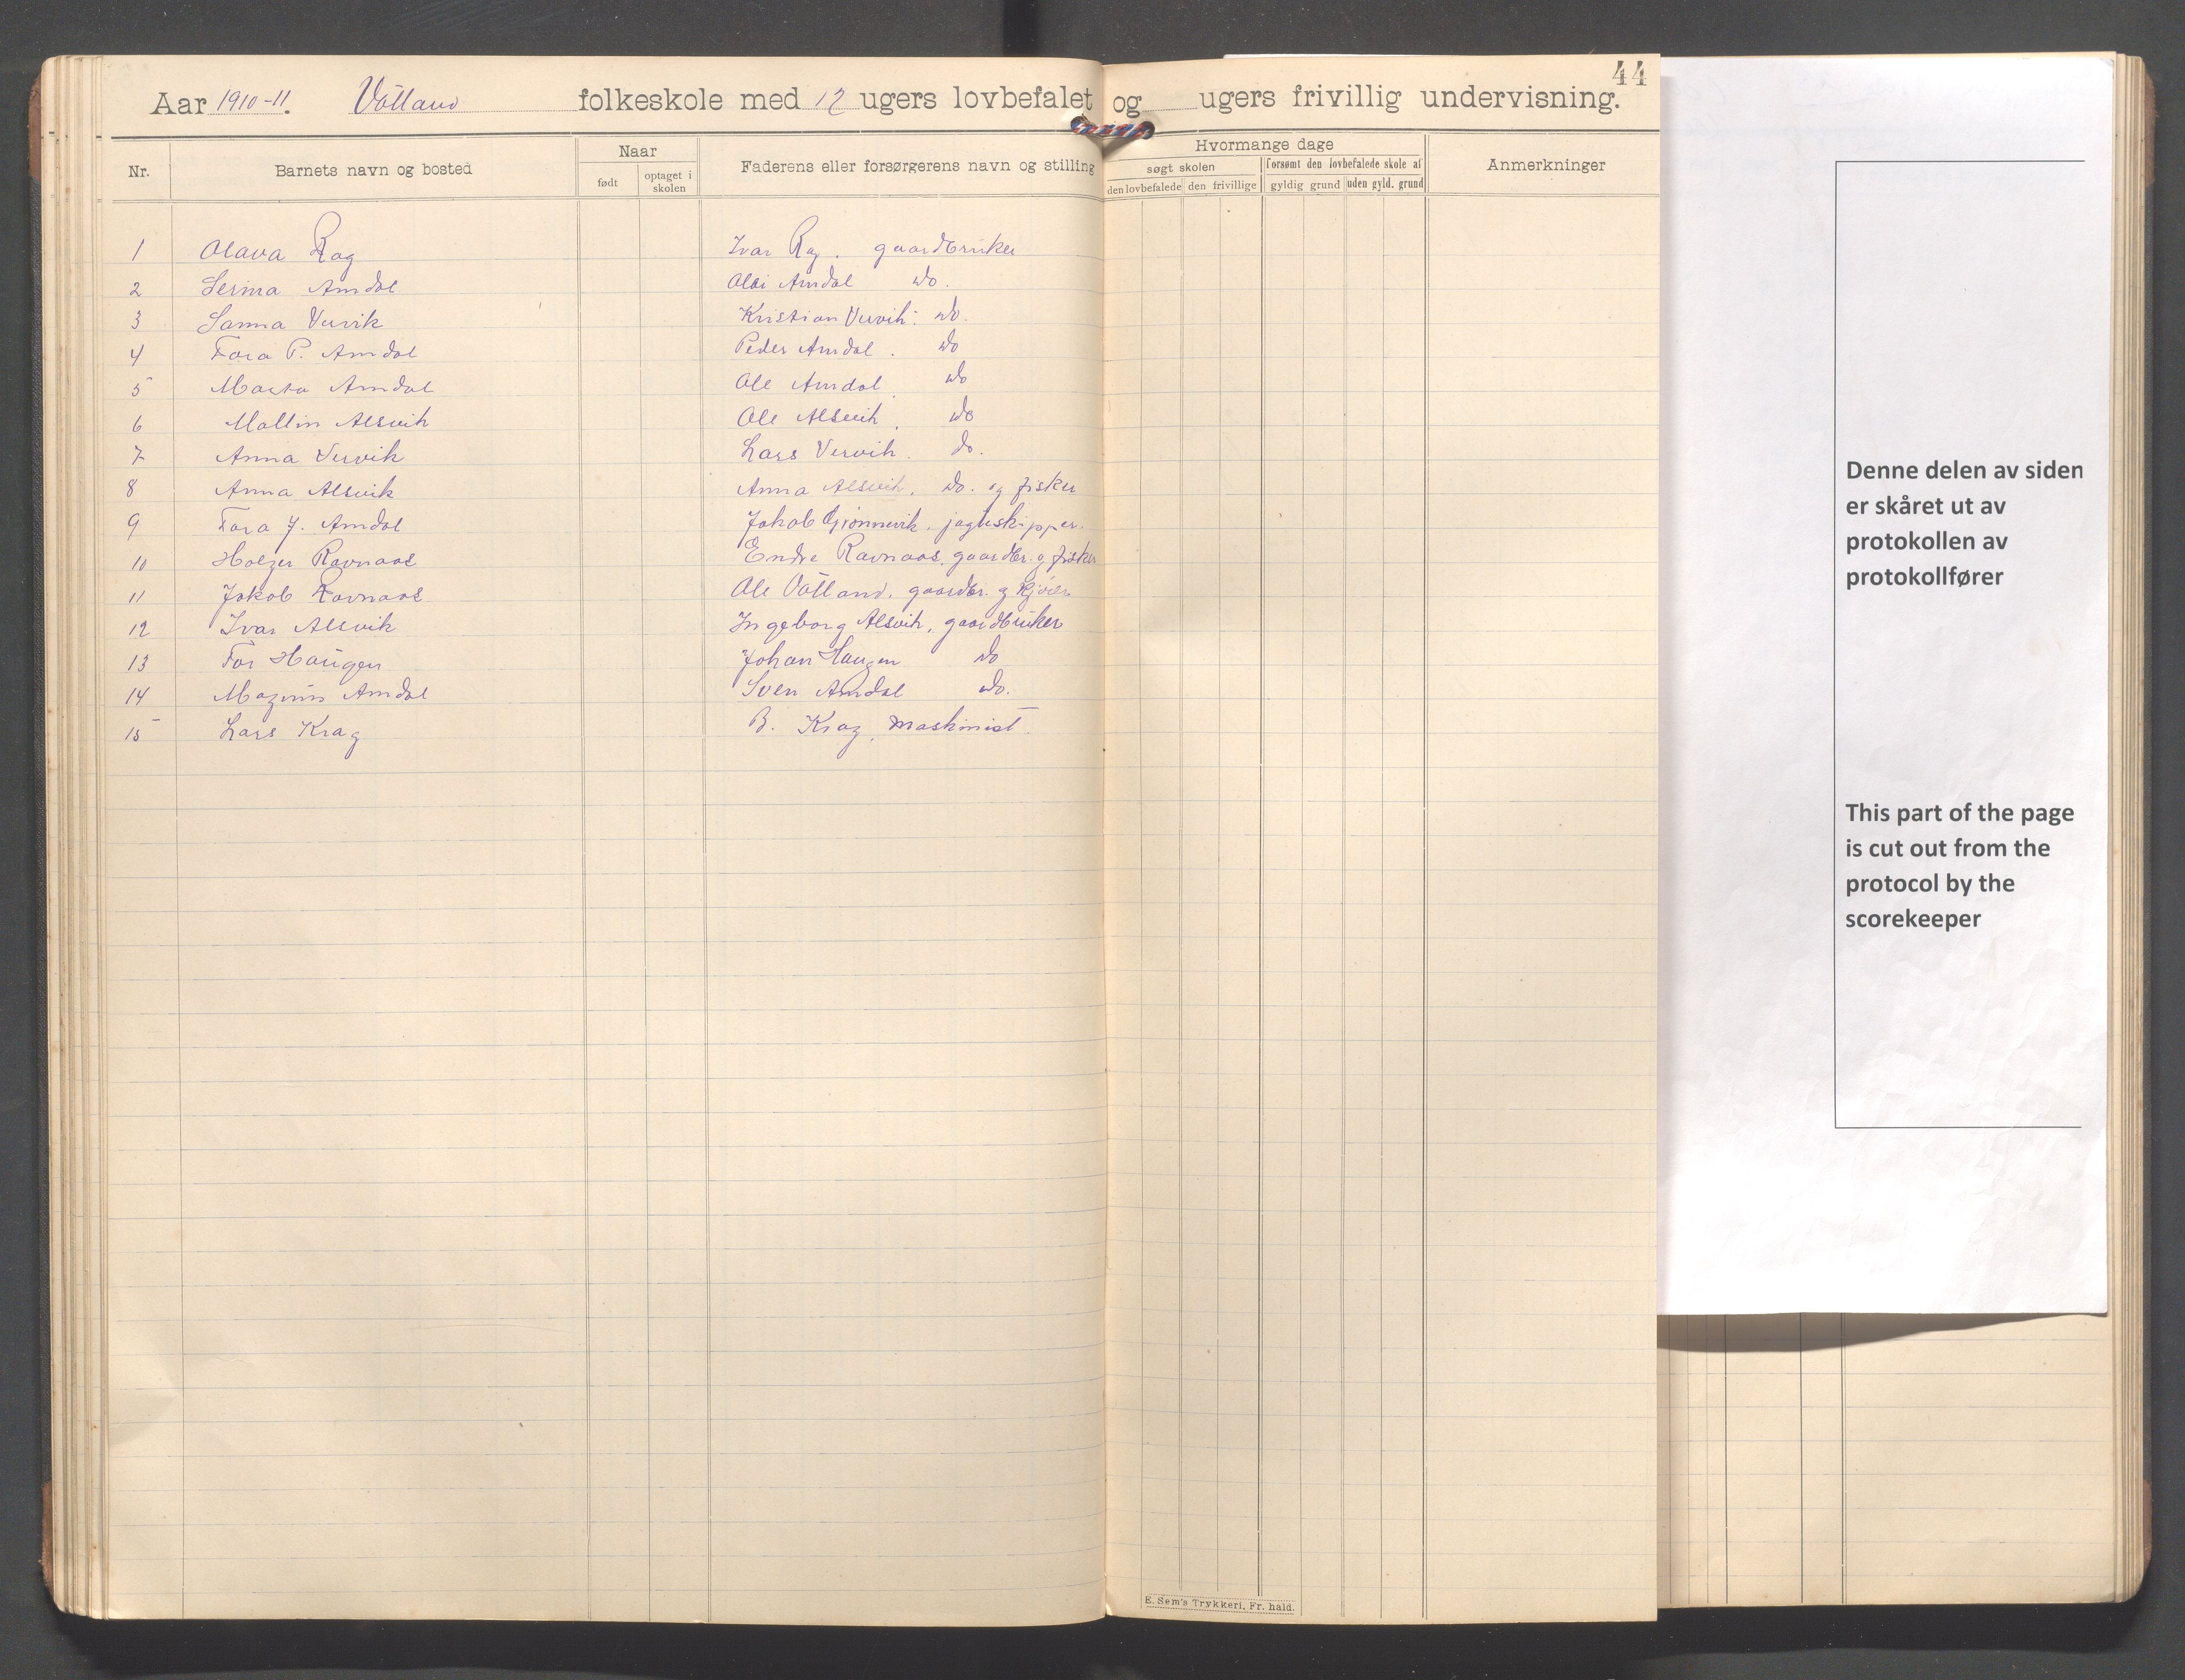 44
Aar 1910-11. Våtland folkeskole med 12 ugers lovbefalet og ugers frivillig undervisning.
Nr. Barnets navn og bosted Naar født optaget i skolen Faderens eller forsørgerens navn og stilling Hvormange dage søgt skolen den lovbefalede den frivillige forsømt den lovbefalede skole af gyldig grund uden gyld. grund Anmerkninger
1 Olava Rag Ivar Rag. gaardbruker
2 Serina Amdal Amdal do.
3 Sanna Vervik Kristian Vervik. do.
4 Tora P. Amdal Peder Amdal. do
5 Marta Amdal Ole Amdal do
6 Mallin Alsvik Ole Alsvik. do
7 Anna Vervik Lars Vervik. do.
8 Anna Alsvik Anna Alsvik. do. og fisker
9 Tora J. Amdal Jakob Grønnevik. jagteskipper.
10 Holger Ravnaas Endre Ravnaas. gaardbr. og fisker
11 Jakob Ravnaas Ole Våtland. gaardbr. og
12 Ivar Alsvik Ingeborg Alsvik. gaardbruker
13 Tor Haugen Johan Haugen do
14 Magnus Amdal Sven Amdal do.
15 Lars Krag B. Krag, maskinist.
E. Sem's Trykkeri, Fr. hald.
Denne delen av siden
er skåret ut av
protokollen av
protokollfører
This part of the page
is cut out from the
protocol by the
scorekeeper